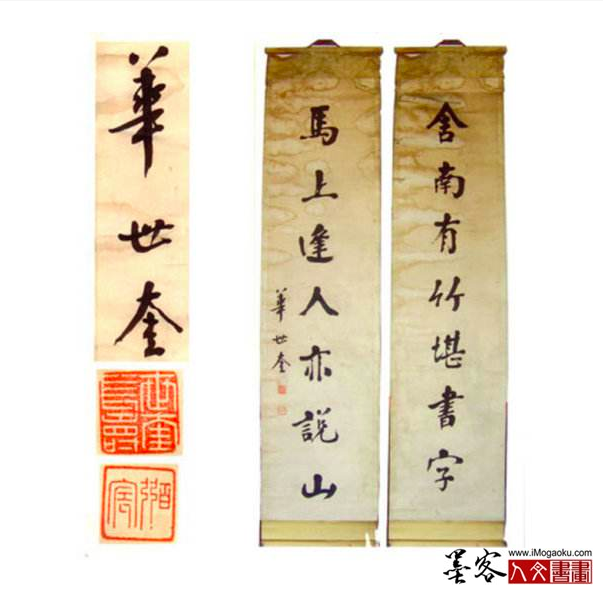 舍南有竹堪書字
馬上逢人亦說山
華世奎
華世奎
墨客
www.iMogaoku.com
人文書畫